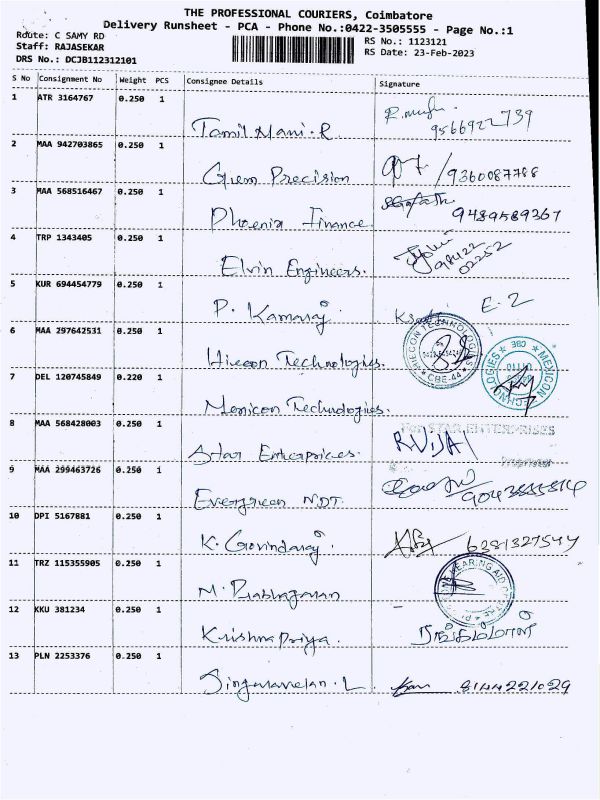 THE PROFESSIONAL COURIERS, Coimbatore
Delivery Runsheet - PCA - Phone No.:0422-3505555 - Page No.:1
Route: C SAMY RD
Staff: RAJASEKAR
DRS No.: DCJB112312101
RS No.: 1123121
RS Date: 23-Feb-2023
S No Consignment No Weight PCS Consignee Details Signature
1 ATR 3164767 0.250 1 Tamil Mani. R
9566922739
2 MAA 942703865 0.250 1 Gem Precision
3 MAA 568516467 0.250 1 Phoenix Finance
9489589367
4 TRP 1343405 0.250 1 Elvin Engineers.
98422
02252
5 KUR 694454779 0.250 1 P. Kamaraj
E-2
6 MAA 297642531 0.250 1 Hivecon Technologies.
CBE-44
7 DEL 120745849 0.220 1 Mexicon Technologies.
MEXICON TECHNOLOGIES CBE
8 MAA 568428003 0.250 1 Star Enterprises.
For STAR ENTERPRISES
R.VIJAI
Proprietor
9 MAA 299463726 0.250 1 Evergreen NDT.
10 DPI 5167881 0.250 1 K. Govindaraj
6381327544
11 TRZ 115355905 0.250 1 M. Prabhagaran
HEARING AID
12 KKU 381234 0.250 1 Krishna Priya.
13 PLN 2253376 0.250 1 Singaravelan. L
8144221029